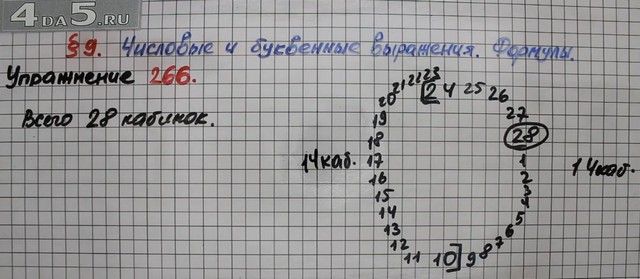 4DA5.RU
§9. Числовые и буквенные выражения. Формулы.
Упражнение 266.
Всего 28 кабинок.
21 22 23 24 25 26
20 27
19 28
18
14каб. 17 1 14каб.
16 2
15 3
14 4
13 5
12 6
11 10 9 8 7